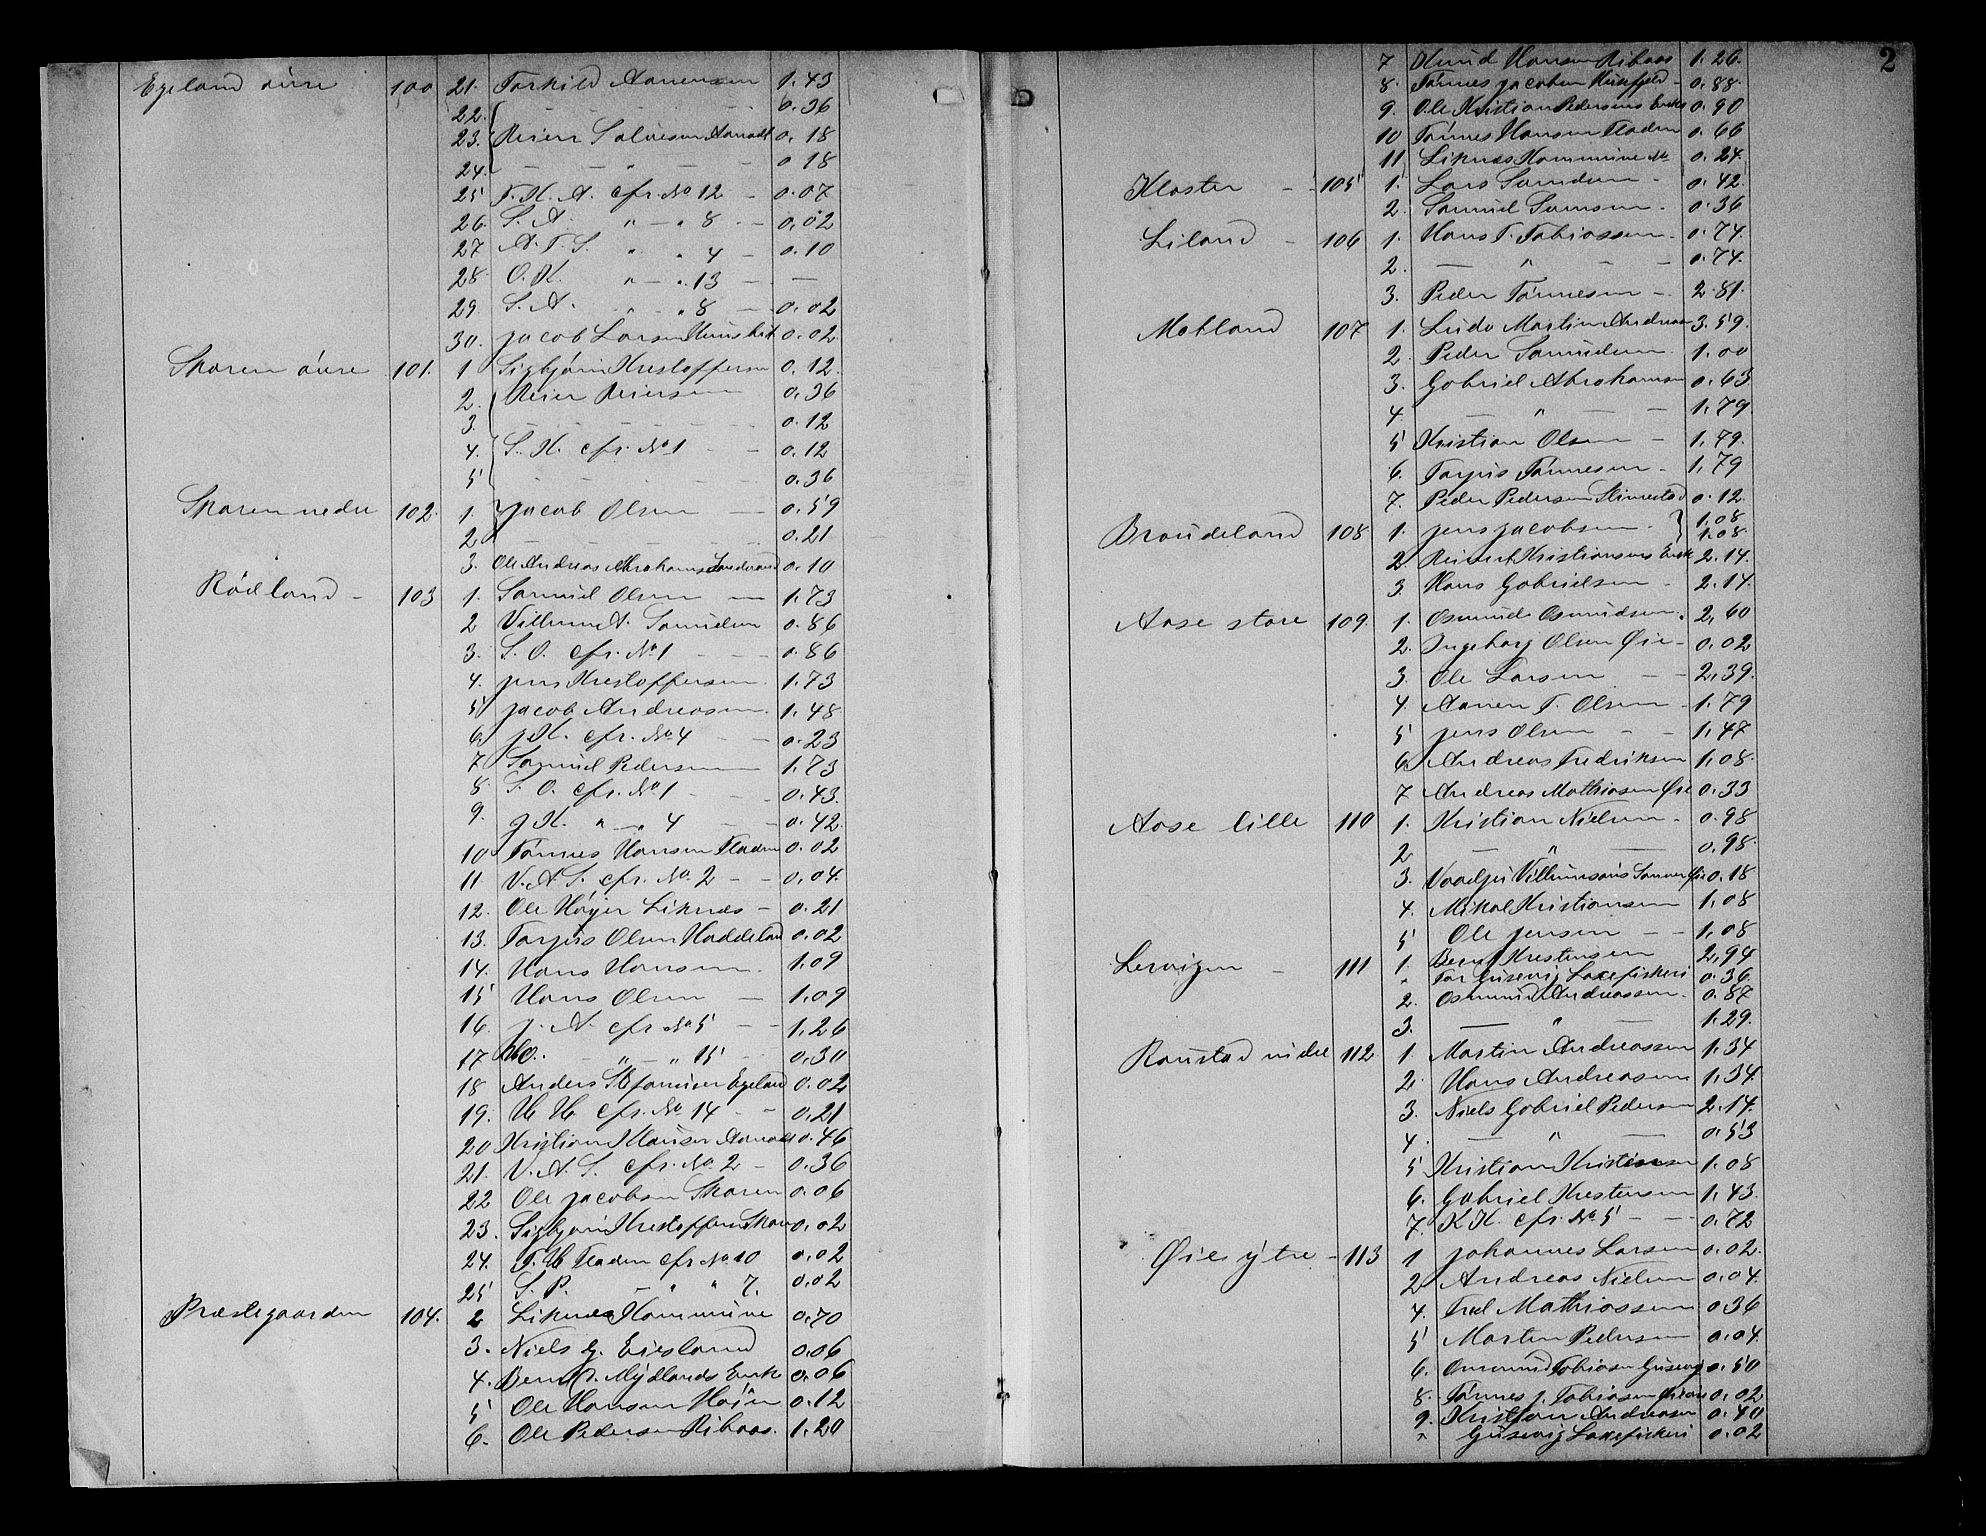 Egeland öure 100 21. Torkild Aanensen 1.43
22. — — — 0.36
23. Reier Salvesen Aamodt 0.18
24. — — " — — 0.18
25 T. K. A. cfr. No 12 — 0.07
26. S. A. " — " 8 — 0.02
27 A. T. S. " " 4 — 0.10
28. O. K. " — " 13 — —
29. S. A. " " 8 — 0.02
30. Jacob Larsen 0.02
Skoren öure 101. 1 Sigbjörn Kristoffersen 0.12.
2. Reier Reiersen 0.36
3. — — — 0.12
4. S. K. cfr. No 1 — 0.12
5 — — — 0.36
Skoren nedre 102. 1. Jacob Olsen — 0.59
2 — — — 0.21
3. Ole Andreas Abrahamsen 0.10
Rödland — 103 1. Samuel Olsen — 1.73
2 Villum A. Samuelsen 0.86
3. S. O. cfr. No 1 — 0.86
4. Jens Kristoffersen 1.73
5 Jacob Andreasen 1.48
6 J. K. cfr. No 4 — 0.23
7 Samuel Pedersen 1.73
8 S. O. cfr. No 1 — 0.43
9. J. K. " — " 4 — 0.42
10 Tönnes Hansen Fladen 0.02
11 V. A. S. cfr. No. 2 — 0.04
12. Ole Höyer Liknæs — 0.21
13. Torjus Olsen Haddeland 0.02
14. Hans Hansen 1.09
15 Hans Olsen — 1.09
16. J. A. cfr No 5 — 1.26
17 H.O. — " — " 15 0.30
18 Anders Egeland 0.02
19. H. H. cfr. No. 14 — 0.21
20 Kristian Aamodt 0.46
21. V. A. S. cfr. No. 2 — 0.36
22 Ole Jacobsen Skoren 0.06
23. Sigbjörn Kristoffersen Skoren 0.02
24. T. H. Fladen cfr No 10 0.02
25 S. P. — " " 7. 0.02
Præstegaarden 104. 2 Liknæs Kommune 0.70
3. Niels G. Eiesland 0.06
4. Bernt O. Mydlands Enke 0.06
5 Ole Hansen Höÿer 0.12
6. Ole Pedersen Ribaas. 1.20
2
7 Knud Hansen Ribaas 1.26.
8. Tönnes Jacobsen — 0.88.
9. Ole Kristian Pedersens Enke 0.90
10 Tönnes Hansen Fladen 0.66
11 Liknæs Kommune No 0.24.
Kloster — 105 1. Lars Samuelsen — 0.42
2. Samuel — 0.36
Liland — 106 1. Hans T. Tobiassen 0.74.
2. — " — — 0.74.
3. Peder Tönnesen — 2.81.
Mobland 107 1. Ludv Martin Andreas 3.59.
2. Peder Samuelsen 1.00
3. Gabriel Abrahamsen 0.63
4 — " — — 1.79.
5 Kristian Olsen — 1.79.
6. Torjus Tönnesen — 1.79
7. Peder Pedersen 0.12
Braudeland 108 1. Jens Jacobsen } 1.08
1.08.
2 Reinert Kristiansens Enke 2.14.
3 Hans Gabrielsen — 2.14.
Aase store 109. 1. Osmund Osmundsen. 2.60
2. Ingeborg Olsen Öie — 0.02
3. Ole Larsen — 2.39.
4. Aanen T. Olsen — 1.79
5 Jens Olsen — 1.47
6 Andreas Fredriksen 1.08.
7 Andreas Mathiasen Öie 0.33
Aase lille 110 1. Kristian Nielsen — 0.98
2 — " — 0.98.
3. Villumsens 0.18
4. Mikal Kristiansen 1.08
5 Ole Jensen — 1.08
Lervigen — 111 1. Bernt Kristensen 2.94
" For Gusevig Laxefiskeri 0.36
2. Osmund Andreassen. 0.87
3. — " — 1.29.
Raustad nedre 112. 1. Martin Andreassen 1.34
2. Hans Andreasen 1.34.
3. Niels Gabriel Pedersen 2.14.
4. — " — 0.53
5 Kristian Kristensen 1.08
6. Gabriel Kristensen 1.43.
7. K. K. cfr. No 5 — 0.72
Öie ytre — 113 1 Johannes Larsen 0.02.
2 Andreas Nielsen 0.04.
4. Fred Mathiassen 0.36
5 Morten Pedersen 0.04.
6. Tobiasen Gusevig 0.50
8. Tönnes J. Tobiasen 0.02
9. Kristian Andreasen 0.40
" Gusevig Laxefiskeri 0.02